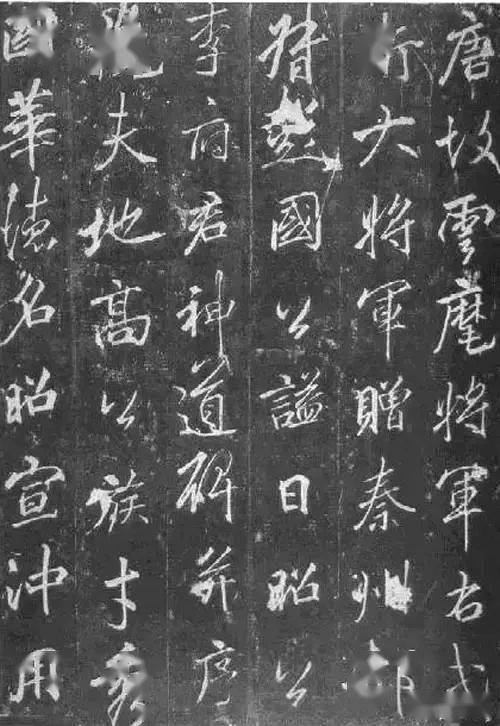 唐故雲麾將軍右武
大將軍贈秦州都
督彭國公謚曰昭公
李府君神道碑并序
夫地高公族才秀
國華德名昭宣沖用